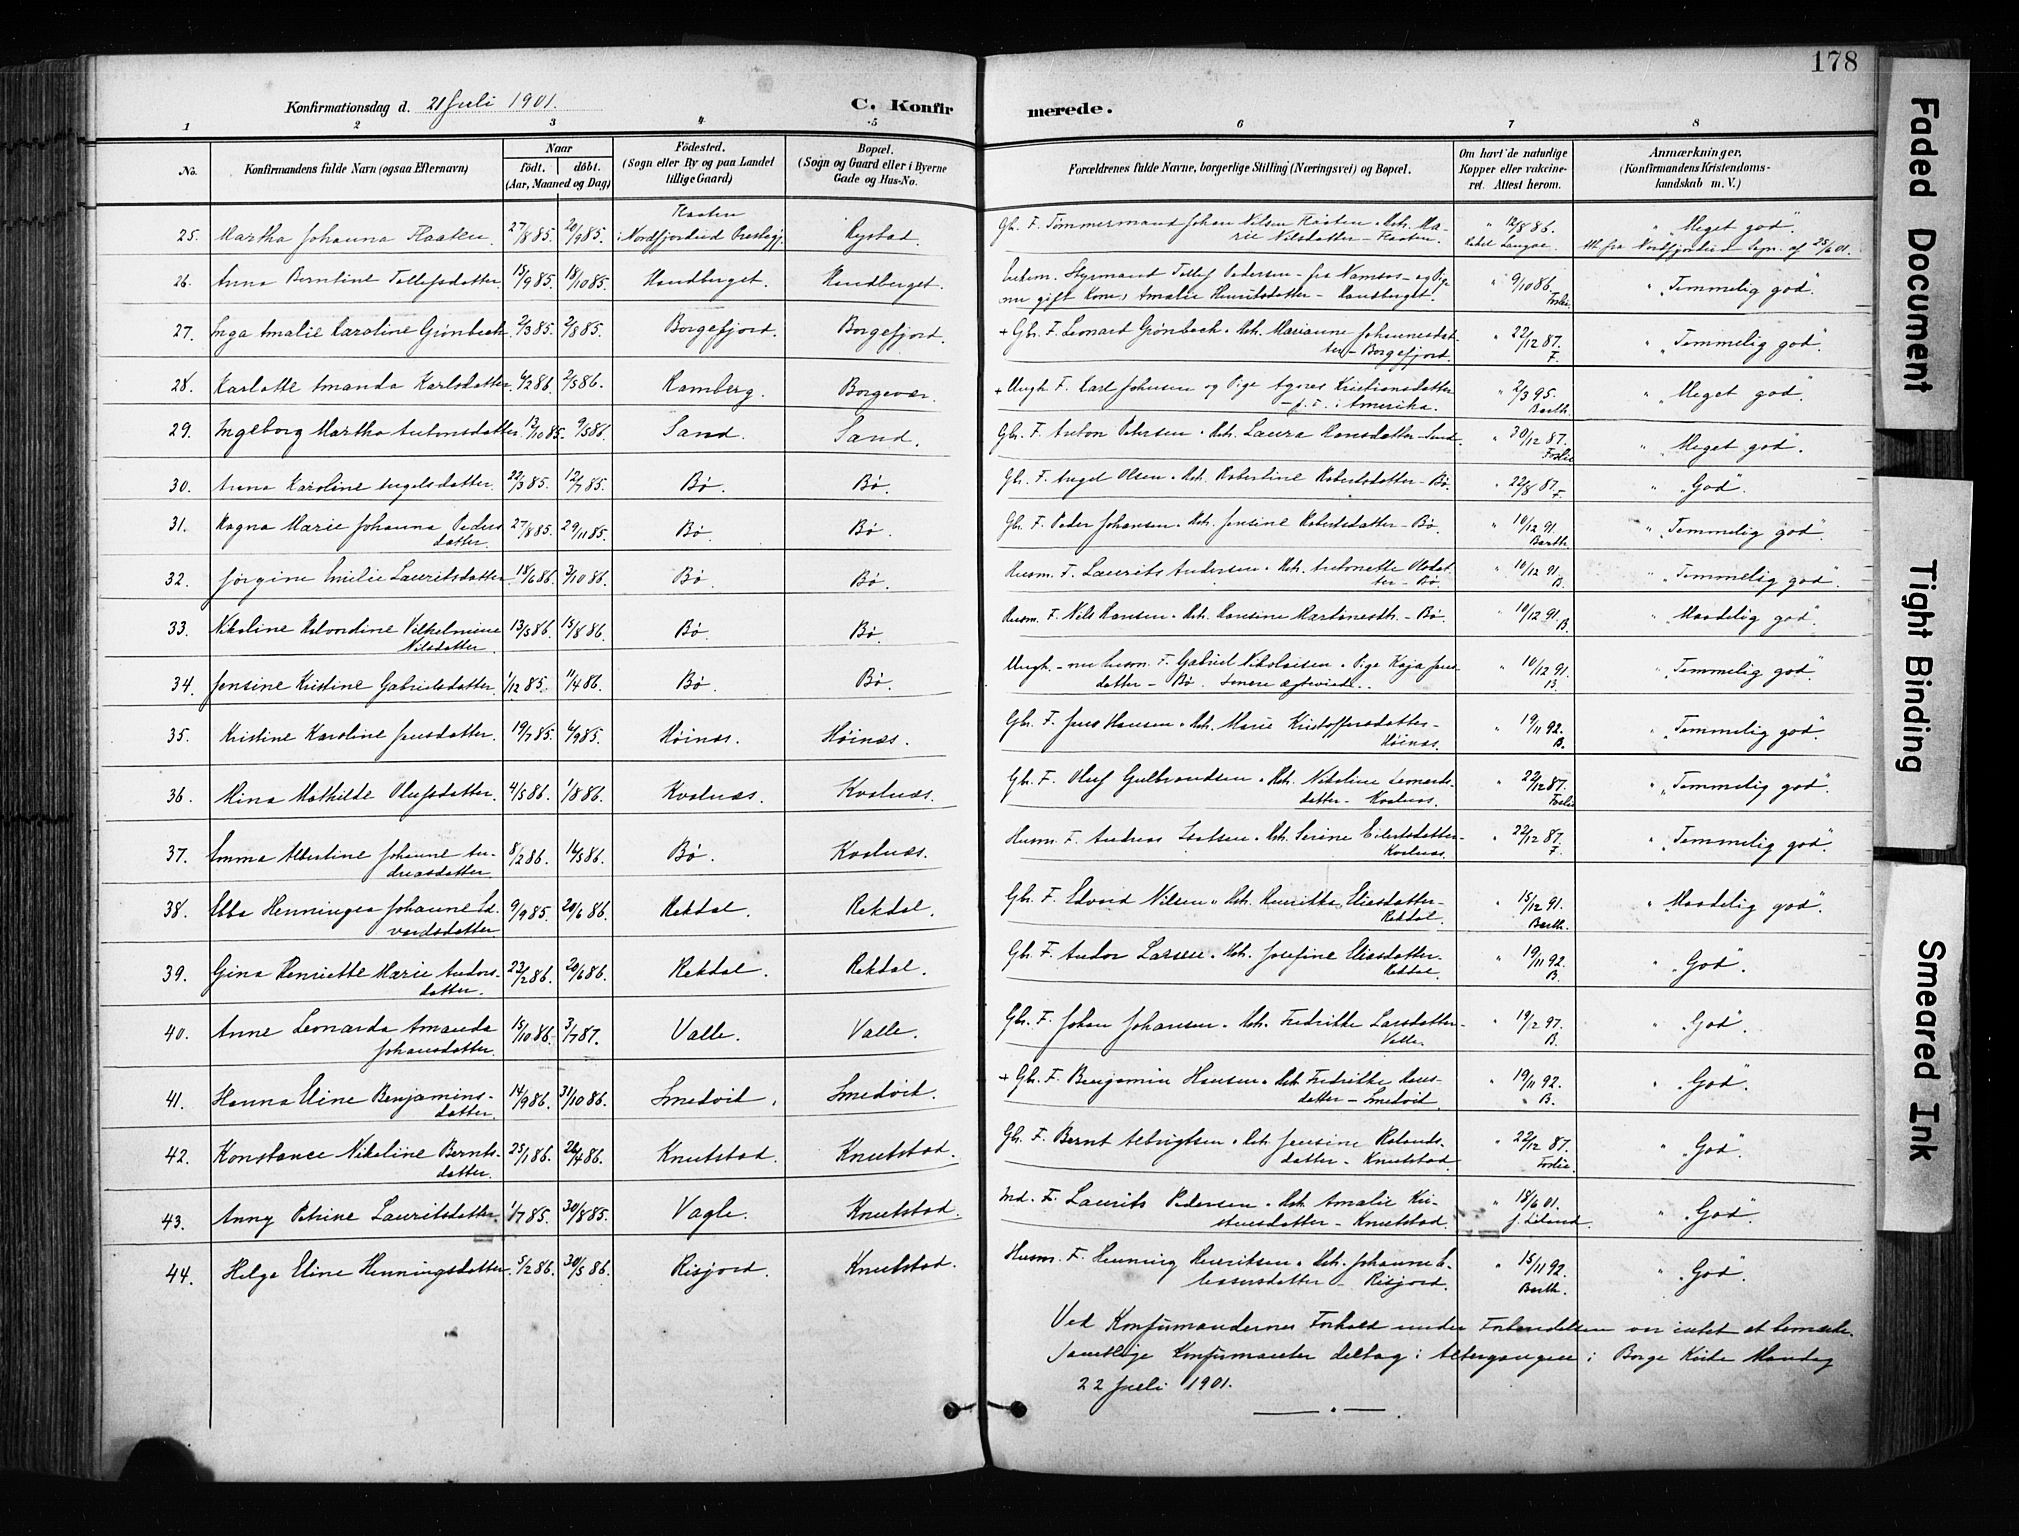 178
Konfirmationsdag d. 21 Juli 1901.
C. Konfirmerede.
1 2 3 4 5 6 7 8
No. Konfirmandens fulde Navn (ogsaa Efternavn) Naar født. døbt. (Aar, Maaned og Dag) Fødested. (Sogn eller By og paa Landet tillige Gaard) Bopæl. (Sogn og Gaard eller i Byerne Gade og Hus-No. Forældrenes fulde Navne, borgerlige Stilling (Næringsvei) og Bopæl. Om havt de naturlige Kopper eller vakcineret. Attest herom. Anmærkninger. (Konfirmandens Kristendomskundskab m. V.)
25. Martha Johanna Flaaten 27/8 85. 20/9 85. Flaaten i Nordfjordeid Prestegj. Rystad. Gbr. F. Tømmermand Johan Nilsen Flaaten, Hstr. Marie Nilsdatter - Flaaten. " 12/8 86. "Meget god".
26. Anna Berntine Tollefsdatter 15/9 85. 18/10 85. Handberget. Handberget. Styrmand Tollef Pedersen - fra Namsos - og Pige nu gift Kone, Amalie Henriksdatter - Handberget. " 9/10 86. Foslie "Temmelig god".
27. Inga Amalie Karoline Grønbech 2/3 85. 2/8 85. Borgefjord. Borgefjord. + Gbr. F. Leonard Grønbech, Hstr. Marianne Johannesdatter - Borgefjord. " 22/12 87. F. "Temmelig god".
28. Karlotte Amanda Karlsdatter 6/2 86. 2/5 86. Ramberg. Borgevær. + Ungk. F. Karl Johnsen og Pige Agnes Kristiansdatter - p. t. i Amerika. " 2/3 95. Barth. "Meget god".
29. Ingeborg Martha Antonsdatter 12/10 85. 9/5 86. Sand. Sand. Gbr. F. Anton Petersen, Hstr. Laura Hansdatter - Sand. " 30/12 87. Foslie "Meget god".
30. Anna Karoline Angelsdatter 22/3 85. 12/7 85. Bø. Bø. Gbr. F. Angel Olsen, Hstr. Robertine Robertsdatter - Bø. " 22/8 87. F. "God".
31. Ragna Marie Johanna Pedersdatter. 27/8 85. 29/11 85. Bø. Bø. Gbr. F. Peder Johansen, Hstr. Jensine Robertsdatter - Bø. " 10/12 91. Barth. "Temmelig god".
32. Jørgine Emilie Lauritsdatter 18/6 86. 3/10 86. Bø. Bø. Husm. F. Laurits Andersen, Hstr. Antonette Olsdatter - Bø. " 10/12 91. B. "Temmelig god".
33. Nikoline Vilhelmine Nilsdatter. 13/5 86. 15/8 86. Bø. Bø. Husm. F. Nils Hansen, Hstr. Hansine Martinesdtr. - Bø. " 10/12 91. B. "Maadelig god".
34. Jensine Kristine Gabrielsdatter 1/12 85. 11/4 86. Bø. Bø. Ungk. - nu husm. F. Gabriel Nikolaisen, Pige Kaja Jensdatter - Bø. Senere ægteviede. " 10/12 91. B. "Temmelig god".
35. Kristine Karoline Jensdatter. 19/7 85. 6/9 85. Høinæs. Høinæs. Gbr. F. Jens Hansen, Hstr. Marie Kristoffersdatter - Høinæs. " 19/11 92. B. "Temmelig god".
36. Mina Mathilde Olufsdatter. 4/5 86. 1/8 86. Kvalnæs. Kvalnæs. Gbr. F. Oluf Gulbrandsen, Hstr. Nikoline Leonardsdatter - Kvalnæs. " 22/12 87. Foslie "Temmelig god".
37. Emma Albertine Johanne Andreasdatter 8/2 86. 16/5 86. Bø. Kvalnæs. Husm. F. Andreas Isaksen, Hstr. Serine Eilertsdatter - Kvalnæs. " 22/12 87. F. "Temmelig god".
38. Ebba Henningea Johanne Edvardsdatter. 9/9 85. 20/6 86. Rekdal. Rekdal. Gbr. F. Edvard Nilsen, Hstr. Henrikka Eliasdatter - Rekdal. " 15/12 91. Barth. "Maadelig god".
39. Gina Henriette Marie Andorsdatter. 23/2 86. 20/6 86. Rekdal. Rekdal. Gbr. F. Andor Larsen, Hstr. Josefine Eliasdatter - Rekdal. " 19/11 92. B. "God".
40. Anne Leonarda Amanda Johansdatter. 15/10 86. 3/7 87. Valle. Valle. Gbr. F. Johan Johansen, Hstr. Fredrikke Larsdatter - Valle. " 19/2 97. B. "God".
41. Hanna Eline Benjaminsdatter. 14/9 86. 31/10 86. Smedvik. Smedvik. + Gbr. F. Benjamin Hansen, Hstr. Fredrikke Hansdatter - Smedvik. " 19/11 92. B. "God".
42. Konstance Nikoline Berntsdatter. 25/1 86. 26/4 86. Knutstad. Knutstad. Gbr. F. Bernt Albrigtsen, Hstr. Jensine Rolandsdatter - Knutstad. " 22/12 87. Foslie. "God".
43. Anny Petrine Lauritsdatter 1/7 85. 30/8 85. Vagle. Knutstad. Ind. F. Laurits Pedersen, Hstr. Amalie Kristensdatter - Knutstad. " 18/6 01. "God".
44. Helga Eline Henningsdatter 5/2 86. 30/5 86. Risjord. Knutstad. Husm. F. Henning Henriksen, Hstr. Johanne Eliesersdatter - Risjord. " 15/11 92. Barth. "God".
Ved Konfirmandernes Forhold under Forberedelsen var intet at bemærke.
Samtlige Konfirmanter deltog i Altergangen i Borge Kirke Mandag
22 Juli 1901.
Faded Document
Tight Binding
Smeared Ink